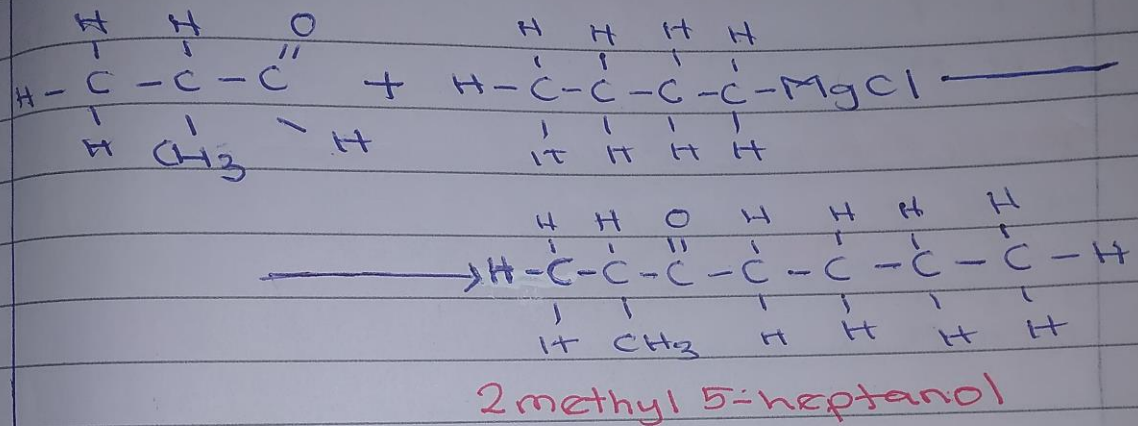 H H O H H H H
H - C - C - C + H - C - C - C - C - MgCl
H CH3 H H H H H
H H O H H H H
H - C - C - C - C - C - C - C - H
H CH3 H H H H
2 methyl 5-heptanol